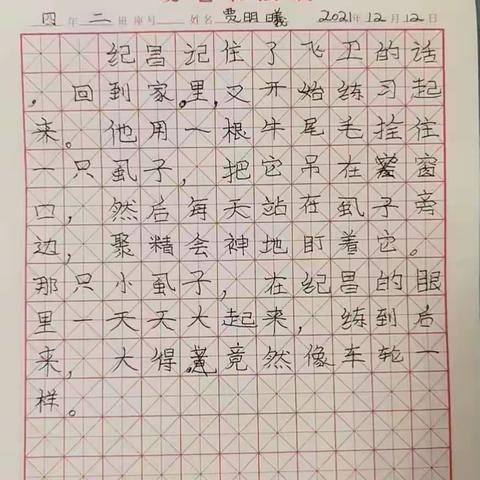 四年二班座号 姓名 贾明曦 2021年12月12日
纪昌记住了飞卫的话
，回到家里,又开始练习起
来。他用一根牛尾毛拴住
一只虱子，把它吊在窗
口，然后每天站在虱子旁
边，聚精会神地盯着它。
那只小虱子，在纪昌的眼
里一天天大起来，练到后
来，大得竟然像车轮一
样。